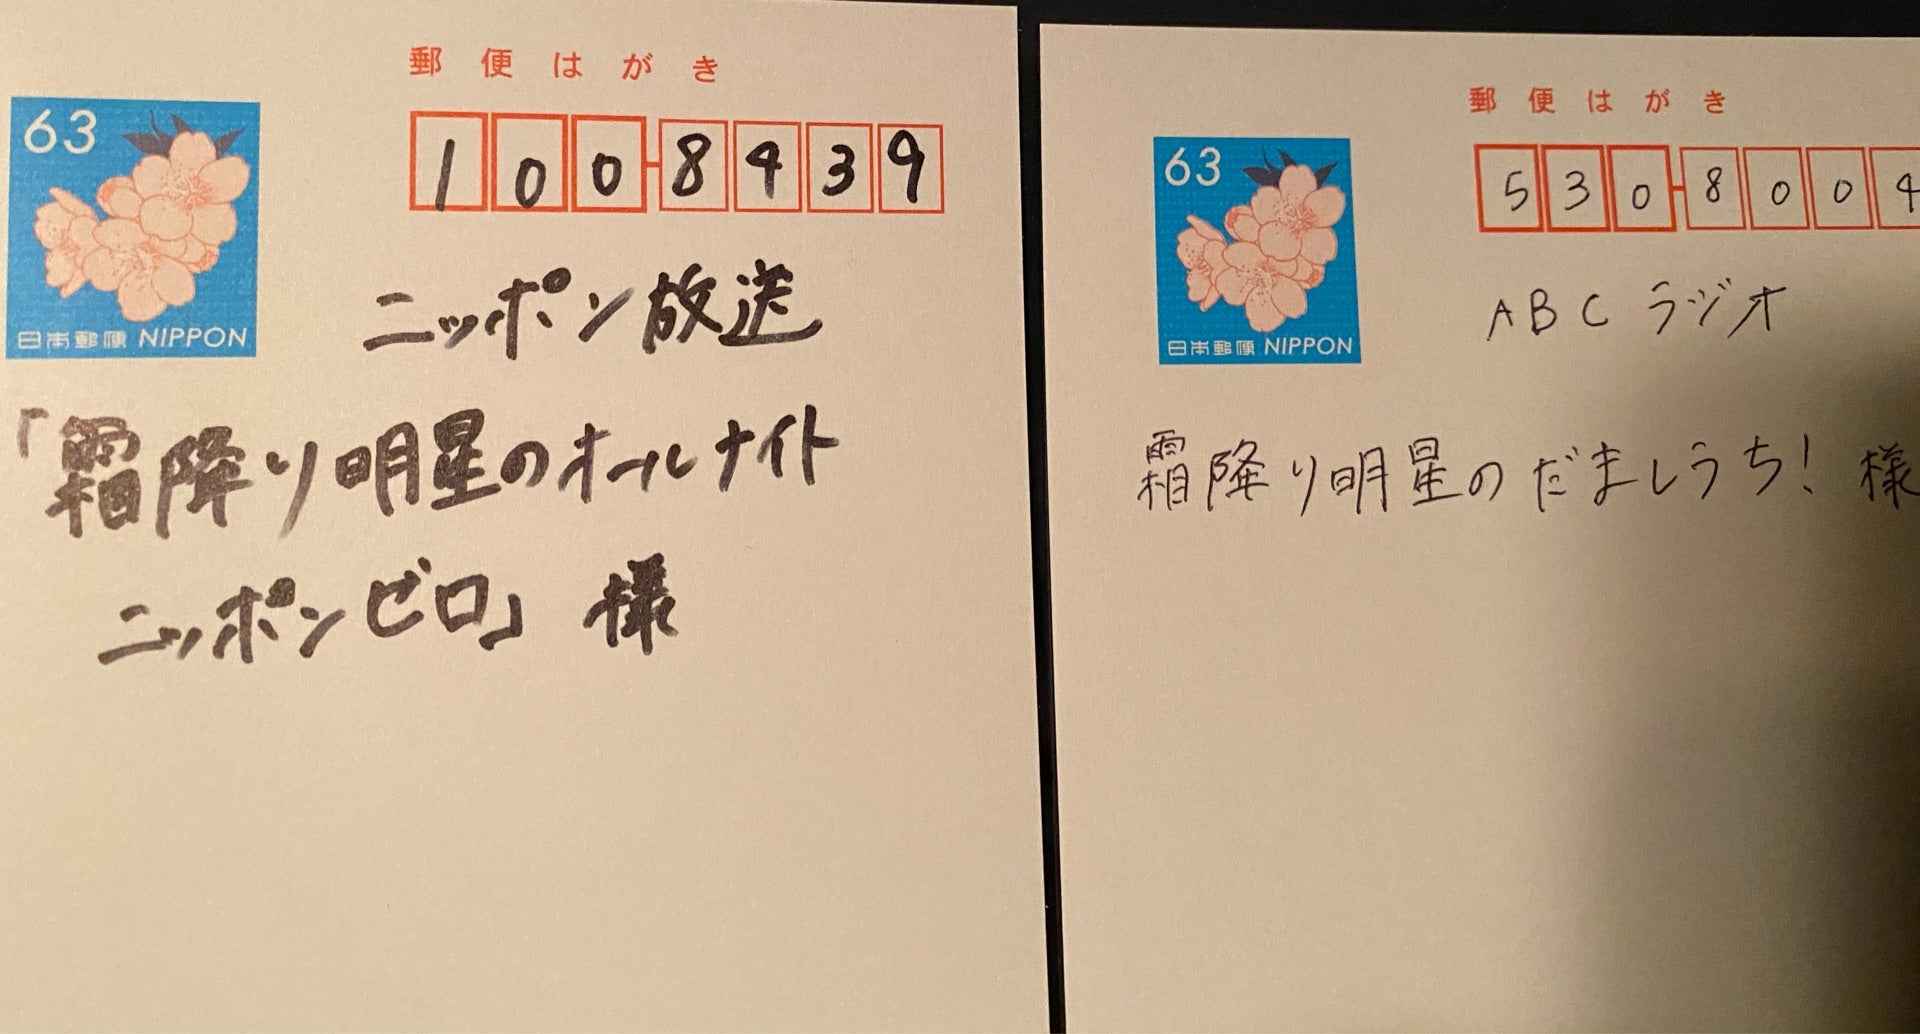 郵便はがき
63
日本郵便 NIPPON
100-8439
ニッポン放送
「霜降り明星のオールナイト
ニッポンゼロ」様
郵便はがき
63
日本郵便 NIPPON
530-8004
ABCラジオ
霜降り明星のだましうち!様